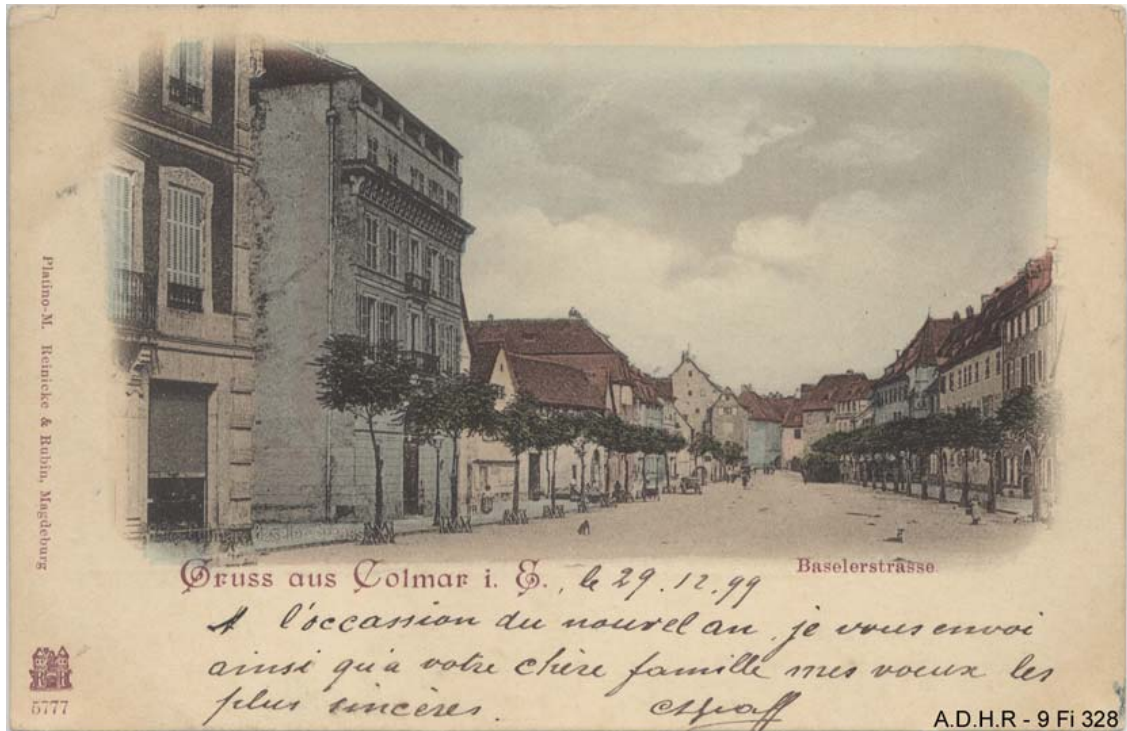 Platino-M. Reinicke & Rubin, Magdeburg
Gruss aus Colmar i. E., le 29.12.99
Baselerstrasse.
A l'occassion du nouvel an, je vous envoi
ainsi qu'a votre chère famille mes voeux les
plus sincères.
5777
A.D.H.R - 9 Fi 328